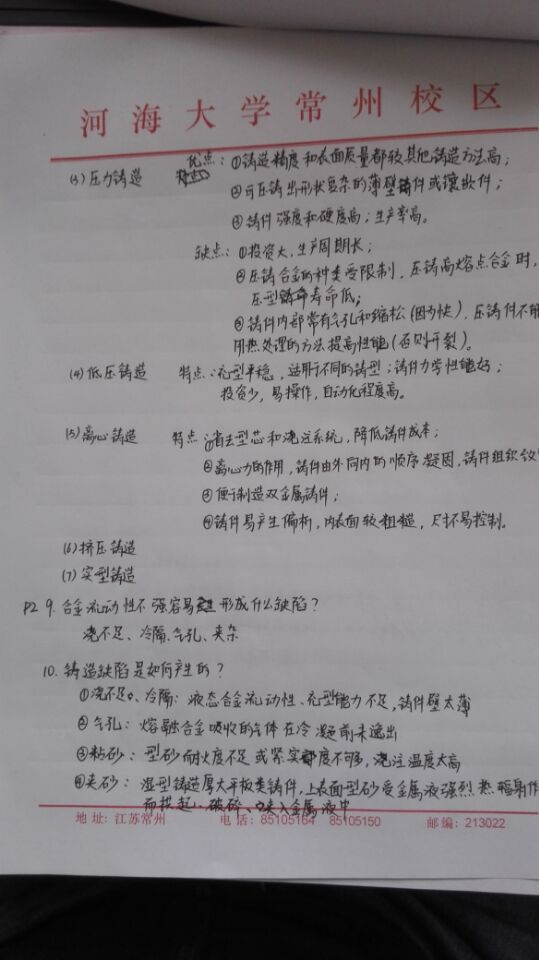 河海大学常州校区
(3) 压力铸造 优点：①铸造精度和表面质量都较其他铸造方法高；
②可压铸出形状复杂的薄壁铸件或镶嵌件；
③铸件强度和硬度高；生产率高。
缺点：①投资大，生产周期长；
②压铸合金的种类受限制，压铸高熔点合金时，
压型寿命低；
③铸件内部常有气孔和缩松(因为快)，压铸件不能
用热处理的方法提高性能(否则开裂)。
(4) 低压铸造 特点：充型平稳，适用于不同的铸型；铸件力学性能好；
投资少，易操作，自动化程度高。
(5) 离心铸造 特点：①省去型芯和浇注系统，降低铸件成本；
②离心力的作用，铸件由外向内的顺序凝固，铸件组织致
③便于制造双金属铸件；
④铸件易产生偏析，内表面较粗糙，尺寸不易控制。
(6) 挤压铸造
(7) 实型铸造
P2 9. 合金流动性不强容易形成什么缺陷？
浇不足、冷隔、气孔、夹杂
10. 铸造缺陷是如何产生的？
①浇不足、冷隔：液态合金流动性、充型能力不足，铸件壁太薄
②气孔：熔融合金吸收的气体在冷凝前未逸出
③粘砂：型砂耐火度不足或紧实度不够，浇注温度太高
④夹砂：湿型铸造厚大平板类铸件，上表面型砂受金属液强烈热辐射作
而拱起、破碎、夹入金属液中
地址：江苏常州 电话：85105164 85105150 邮编：213022